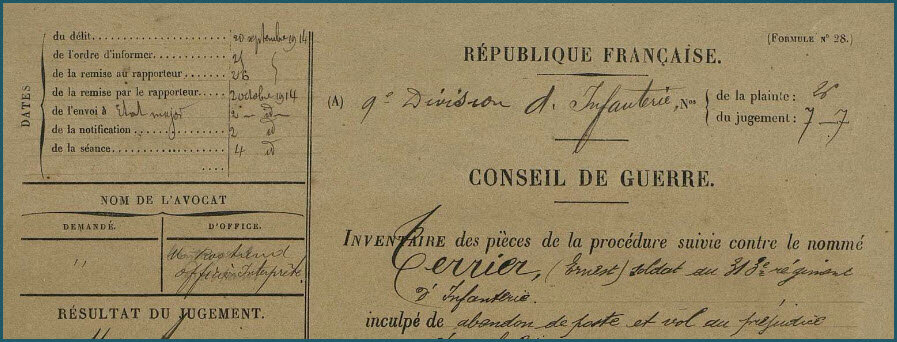 DATES
du délit 20 septembre 1914
de l'ordre d'informer 25
de la remise au rapporteur 26
de la remise par le rapporteur 2 octobre 1914
de l'envoi à Etat major 2 — d —
de la notification 2 id
de la séance 4 id
NOM DE L'AVOCAT
DEMANDÉ. D'OFFICE.
〃
officier interprète
RÉSULTAT DU JUGEMENT.
(FORMULE N° 28.)
RÉPUBLIQUE FRANÇAISE.
(A) 9e Division d'Infanterie, Nos
de la plainte :
du jugement : 7-7
CONSEIL DE GUERRE.
INVENTAIRE des pièces de la procédure suivie contre le nommé
Terrier, (Ernest) soldat au 313e régiment
d'Infanterie.
inculpé de abandon de poste et vol au préjudice